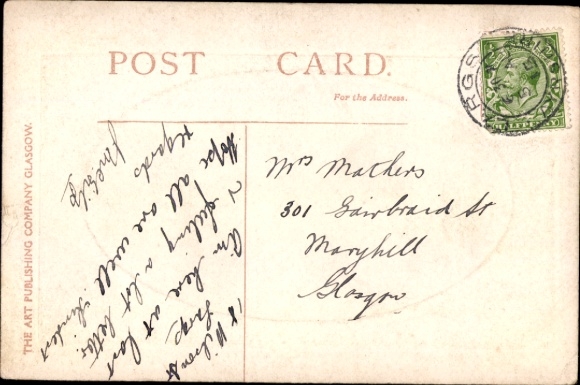 POST CARD.
For the Address.
THE ART PUBLISHING COMPANY GLASGOW.
18 Wilson St
Largs
Am here at last
& feeling a lot better.
Hope all are well. Kindest
regards
Mrs Mathers
301 Gairbraid St
Maryhill
Glasgow